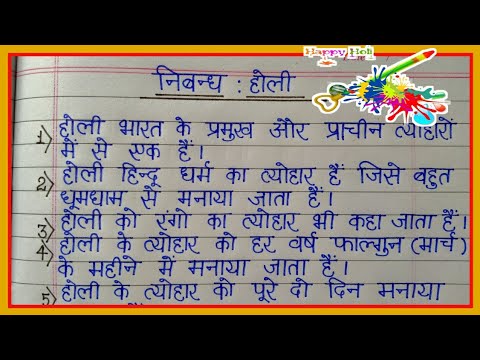 Happy Holi
निबन्ध : होली
1) होली भारत के प्रमुख और प्राचीन त्योहारों
में से एक हैं।
2) होली हिन्दू धर्म का त्योहार हैं जिसे बहुत
धूमधाम से मनाया जाता हैं।
3) होली को रंगो का त्योहार भी कहा जाता हैं।
4) होली के त्योहार को हर वर्ष फाल्गुन (मार्च)
के महीने में मनाया जाता हैं।
5) होली के त्योहार को पूरे दो दिन मनाया